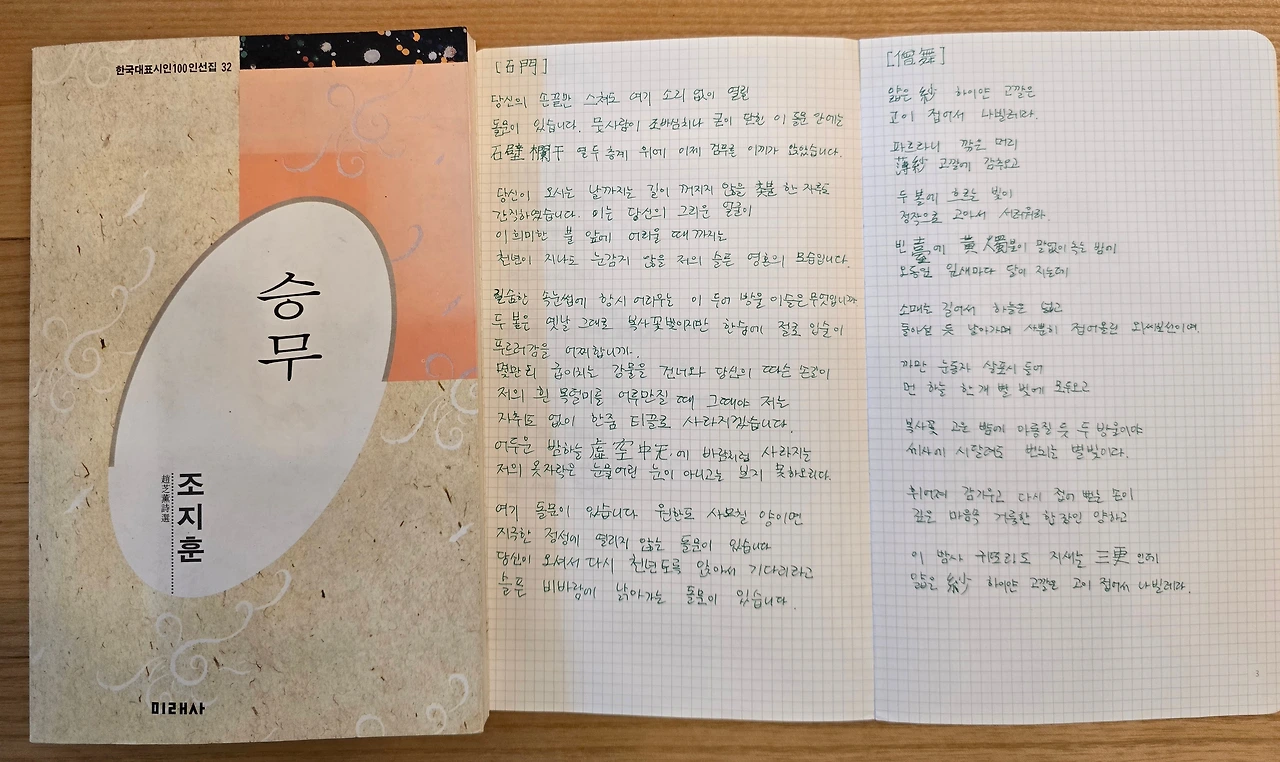 한국대표시인100인선집 32
승무
조지훈
趙芝薰詩選
미래사
[石門]
당신의 손끝만 스쳐도 여기 소리 없이 열릴
돌문이 있습니다. 뭇사람이 조바심치나 굳이 닫힌 이 돌문 안에는
石壁欄干 열두 층계 위에 이제 검푸른 이끼가 앉았습니다.
당신이 오시는 날까지는 길이 꺼지지 않을 촛불 한 자루도
간직하였습니다. 이는 당신의 그리운 얼굴이
이 희미한 불 앞에 어리울 때까지는
천년이 지나도 눈감지 않을 저의 슬픈 영혼의 모습입니다.
길숨한 속눈썹에 항시 어리우는 이 두어 방울 이슬은 무엇입니까
두 볼은 옛날 그대로 복사꽃빛이지만 한숨에 절로 입술이
푸르러감을 어찌합니까.
몇만리 굽이치는 강물을 건너와 당신의 따슨 손길이
저의 흰 목덜미를 어루만질 때 그때야 저는
자취도 없이 한줌 티끌로 사라지겠습니다.
어두운 밤하늘 虛空中天에 바람처럼 사라지는
저의 옷자락은 눈물어린 눈이 아니고는 보지 못하오리다.
여기 돌문이 있습니다 원한도 사모칠 양이면
지극한 정성에 열리지 않는 돌문이 있습니다
당신이 오셔서 다시 천년토록 앉아서 기다리라고
슬픈 비바람에 낡아가는 돌문이 있습니다.
[僧舞]
얇은 紗 하이얀 고깔은
고이 접어서 나빌레라.
파르라니 깎은 머리
薄紗 고깔에 감추오고
두 볼에 흐르는 빛이
정작으로 고아서 서러워라.
빈 臺에 黃燭불이 말없이 녹는 밤에
오동잎 잎새마다 달이 지는데
소매는 길어서 하늘은 넓고
돌아설 듯 날아가며 사뿐히 접어올린 외씨보선이여.
까만 눈동자 살포시 들어
먼 하늘 한 개 별빛에 모두오고
복사꽃 고운 뺨에 아롱질 듯 두 방울이야
세사에 시달려도 번뇌는 별빛이라.
휘어져 감기우고 다시 접어 뻗는 손이
깊은 마음속 거룩한 합장인 양하고
이 밤사 귀또리도 지새는 三更인데
얇은 紗 하이얀 고깔은 고이 접어서 나빌레라.
3